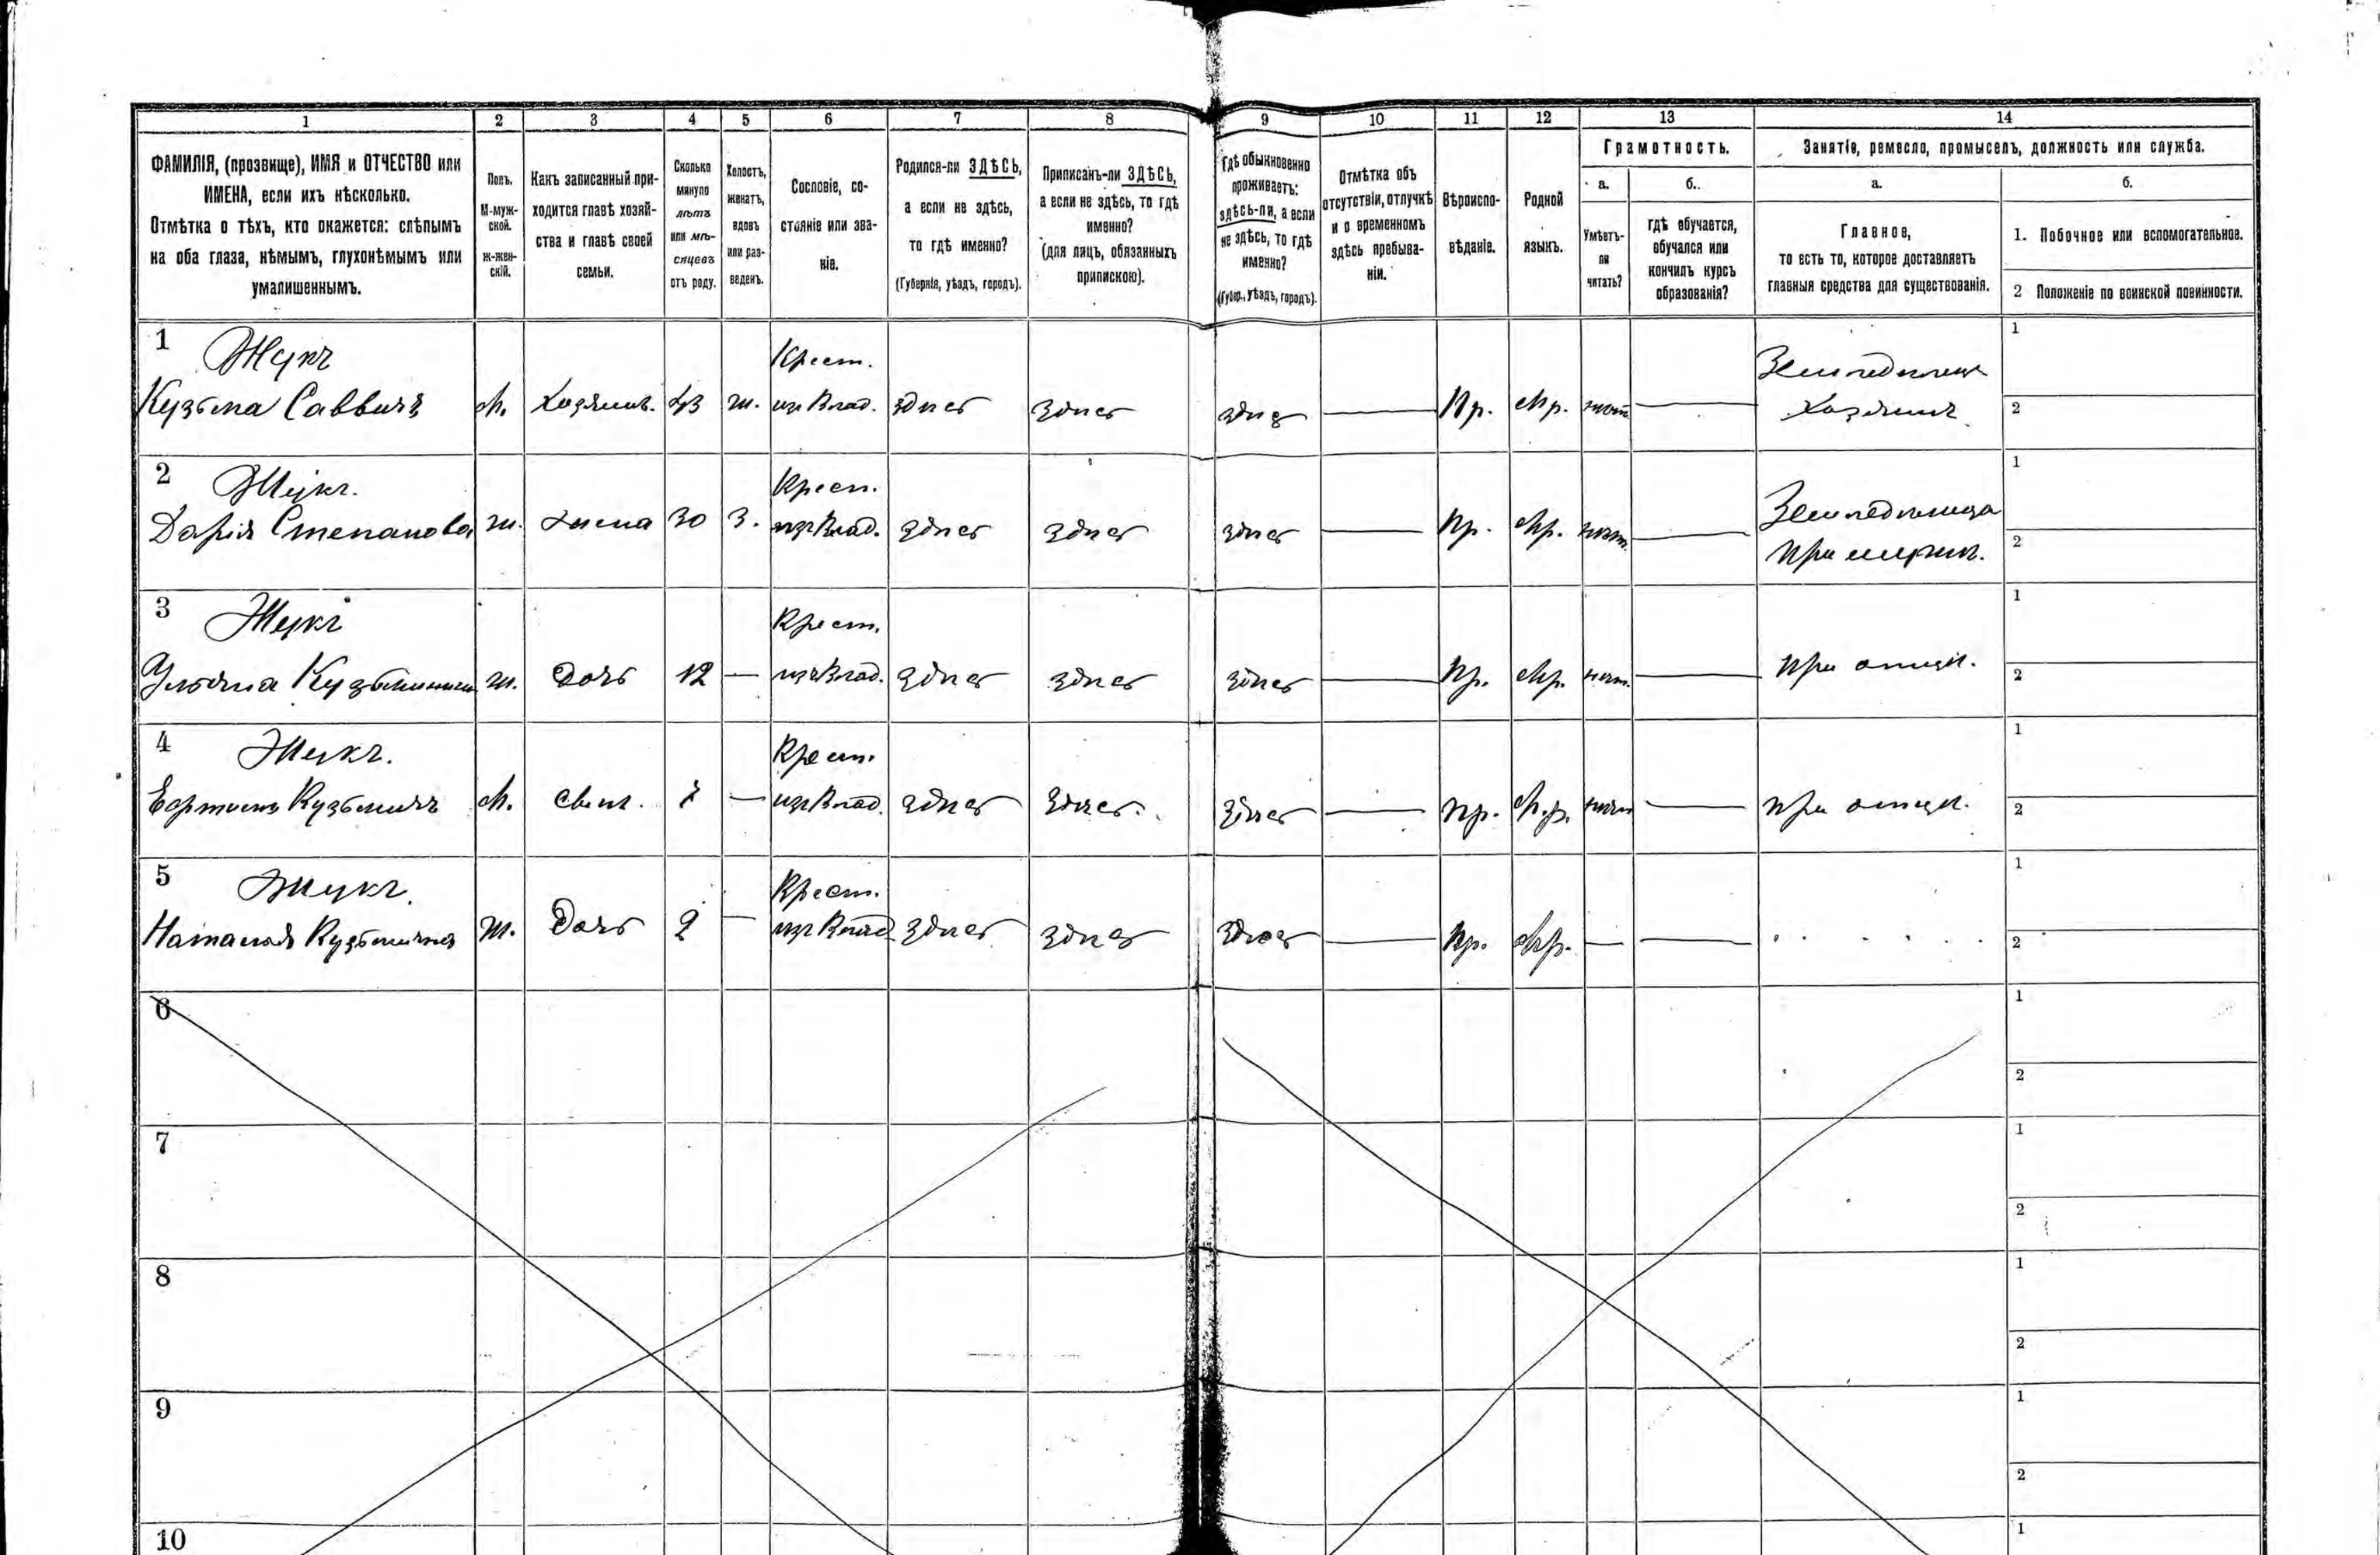 1 2 3 4 5 6 7 8 9 10 11 12 13 14
ФАМИЛІЯ, (прозвище), ИМЯ и ОТЧЕСТВО или
ИМЕНА, если ихъ нѣсколько.
Отмѣтка о тѣхъ, кто окажется: слѣпымъ
на оба глаза, нѣмымъ, глухонѣмымъ или
умалишеннымъ.
Полъ.
М-муж-
ской.
ж-жен-
скій.
Какъ записанный при-
ходится главѣ хозяй-
ства и главѣ своей
семьи.
Сколько
минуло
лѣтъ
или мѣ-
сяцевъ
отъ роду.
Холостъ,
женатъ,
вдовъ
или раз-
веденъ.
Сословіе, со-
стояніе или зва-
ніе.
Родился-ли ЗДѢСЬ,
а если не здѣсь,
то гдѣ именно?
(Губернія, уѣздъ, городъ).
Приписанъ-ли ЗДѢСЬ,
а если не здѣсь, то гдѣ
именно?
(для лицъ, обязанныхъ
припискою).
Гдѣ обыкновенно
проживаетъ:
здѣсь-ли, а если
не здѣсь, то гдѣ
именно?
(Губер., уѣздъ, городъ).
Отмѣтка объ
отсутствіи, отлучкѣ
и о временномъ
здѣсь пребыва-
ніи.
Вѣроиспо-
вѣданіе.
Родной
языкъ.
Грамотность.
а.
б.
Умѣетъ-
ли
читать?
гдѣ обучается,
обучался или
кончилъ курсъ
образованія?
Занятіе, ремесло, промыселъ, должность или служба.
а.
б.
Главное,
то есть то, которое доставляетъ
главныя средства для существованія.
1. Побочное или вспомогательное.
2 Положеніе по воинской повинности.
1 Жукъ Крест. 1
Земледѣлецъ
Кузьма Саввичъ м. Хозяинъ. 43 ж. изъ Влад. здѣсь здѣсь здѣсь — Пр. Мр. нѣт — Хозяинъ 2
2 Жукъ. Крест. 1
Земледѣлица
Дарія Степанова ж. жена 30 З. изъ Влад. здѣсь здѣсь здѣсь — Пр. Мр. нѣт. — при мужѣ. 2
3 Жукъ Крест. 1
Ульяна Кузьминична ж. дочь 12 — изъ Влад. здѣсь здѣсь здѣсь — Пр. Мр. нѣт. — при отцѣ. 2
4 Жукъ. Крест. 1
Кузьмичъ м. сынъ. 7 — изъ Влад. здѣсь здѣсь. здѣсь — Пр. М.р. нѣт — при отцѣ. 2
5 Жукъ. Крест. 1
Наталія Кузьмична ж. дочь 2 — изъ Влад здѣсь здѣсь здѣсь — Пр. Мр. — — 2
6 1
2
7 1
2
8 1
2
9 1
2
10 1